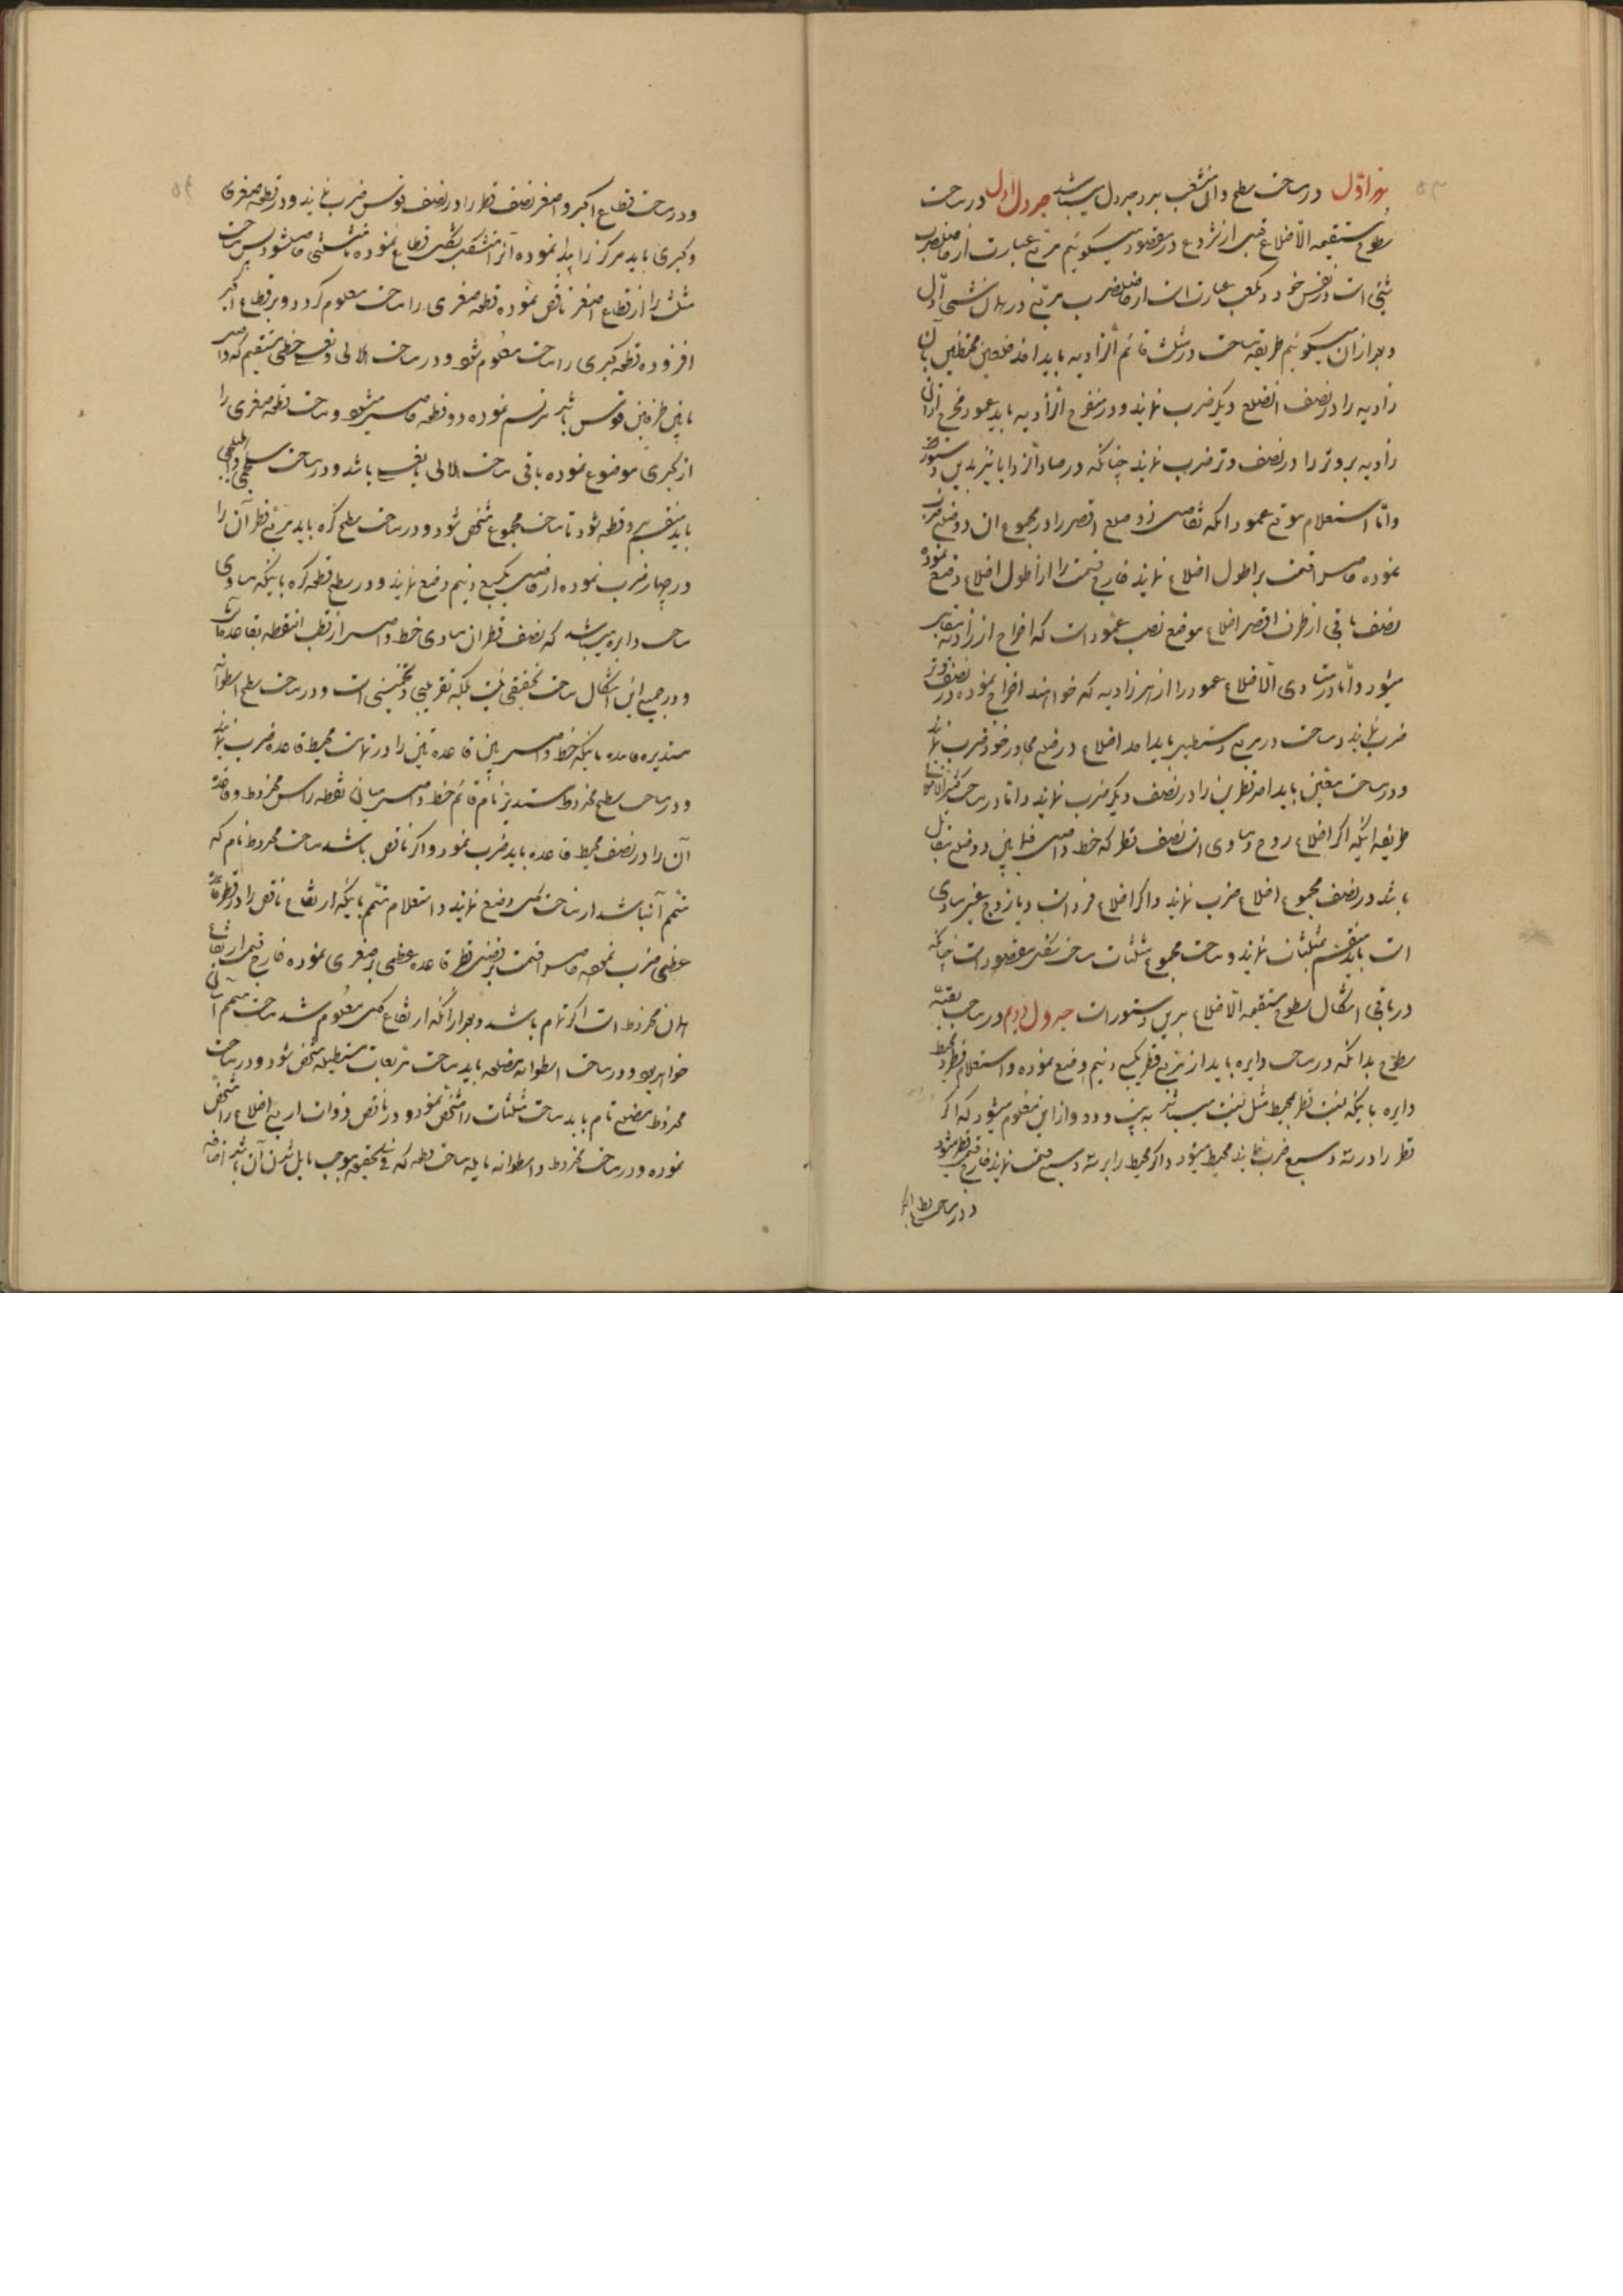 نهر اوّل در ساحت سطح وآن منشعب بر دو جدول میباشد جدول اول در ساحت
سطوح مستقیمة الاضلاع قبل از شروع در مقصود میگوئیم مربع عبارت از حاصل ضرب
شیئ است در نفس خود و مکعب عبارت است از حاصل ضرب مربع در همان شیئ اوّل
و بعد از آن میگوئیم طریقه مساحت در مثلث قائم الزاویه باید احد ضلعین محیطین بآن
زاویه را در نصف الضلع دیگر ضرب نمایند و در منفرج الزاویه باید عمود مخرج از آن
زاویه بر وتر را در نصف وتر ضرب نمایند چنانکه در حاد الزوایا نیز بدین دستور
و امّا استعلام موقع عمود آنکه تفاضل دو ضلع اقصر را در مجموع ان دو ضلع ضرب
نموده حاصل را قسمت بر اطول اضلاع نمایند خارج قسمت را از اطول اضلاع وضع نموده
نصف باقی از طرف اقصر اضلاع موضع نصب عمود است که اخراج از زاویه
میشود و امّا در متساوی الاضلاع عمود را از هر زاویه که خواهند اخراج نموده در نصف وتر
ضرب نمایند و مساحت در مربع و مستطیل باید احد اضلاع در ضلع مجاور خود ضرب نمایند
و در ساحت معین باید احد قطرین را در نصف دیگر ضرب نمایند و امّا در ساحت کثیر الاضلاع
طریقه اینکه اگر اضلاع زوج و مساوی است نصف قطر که خط واصل فیما بین دو ضلع متقابل
باشد در نصف مجموع اضلاع ضرب نمایند و اگر اضلاع فرد است و یا زوج غیر مساوی
است باید منقسم بمثلثات نمایند و ساحت مجموع مثلثات ساحت شکل مقصود است چنانکه
در باقی اشکال سطوح مستقیمة الاضلاع بدین دستور است جدول دویم در ساحت بقیّه
سطوح بدانکه در ساحت دایره باید از مربع قطر یکسبع و نیم وضع نموده و استعلام قطر و محیط
دایره باینکه نسبت قطر بمحیط مثل نسبت هفت به بیست و دو و از این معلوم میشود که اگر
قطر را در سه و سبع ضرب نمایند محیط میشود و اگر محیط را بر سه و سبع قسمت نمایند خارج قسمت قطر میشود
و در ساحت قطاع اکبر
و در ساحت قطاع اکبر و اصغر نصف قطر را در نصف قوس ضرب نمایند و در قطعه صغری
و کبری باید مرکز را پیدا نموده آنرا بشکل قطاع نموده تا مثلثی حاصل شود پس ساحت
مثلث را از قطاع اصغر ناقص نموده قطعه صغری را ساحت معلوم گردد و بر قطاع اکبر
افزوده قطعه کبری را ساحت معلوم شود و در ساحت هلالی و نعلی خطی مستقیم که واصل
مابین طرفین قوس باشد ترسم نموده دو قطعه حاصل میشود و ساحت قطعه صغری را
از کبری موضوع نموده باقی ساحت هلالی یا نعلی باشد و در ساحت
باید منقسم بدو قطعه شود تا ساحت مجموع مشخص شود و در ساحت سطح کره باید مربع قطر آن را
در چهار ضرب نموده از حاصل یکسبع و نیم وضع نمایند و در سطح قطعه کره باینکه مساوی
ساحت دایره میباشد که نصف قطر آن مساوی خط واصل از قطب آن قطعه بقاعده
و در جمیع این اشکال ساحت تحقیقی نیست بلکه تقریبی و تخمینی است و در ساحت سطح اسطوانه
مستدیره قاعده باینکه خط واصل بین قاعدتین را در تمامت محیط قاعده ضرب نمایند
و در ساحت سطح مخروط مستدیر تام قائم خط واصل میان نقطه راس مخروط و قاعده
آن را در نصف محیط قاعده باید ضرب نمود و اگر ناقص باشد ساحت مخروط تام که
متمم آن باشد از ساحت کل وضع نمایند و استعلام متمم باینکه ارتفاع ناقص را در قطر قاعده
عظمی ضرب نموده حاصل را قسمت بر تفاضل قطر قاعده عظمی بر صغری نموده خارج قسمت ارتفاع
همان مخروط است اگر تام باشد و بعد از آنکه ارتفاع کل معلوم شد ساحت متمم آن
خواهد بود و در ساحت اسطوانه مضلعه باید ساحت مربعات مستطیله مشخص شود و در ساحت
مخروط مضلع تام باید ساحت مثلثات را مشخص نمود و در ناقص ذوات اربع اضلاع را مشخص
نموده و در ساحت مخروط و اسطوانه مایله ساحت قطعه که فی الحقیقه موجب مایل شدن آن باشد اضافه